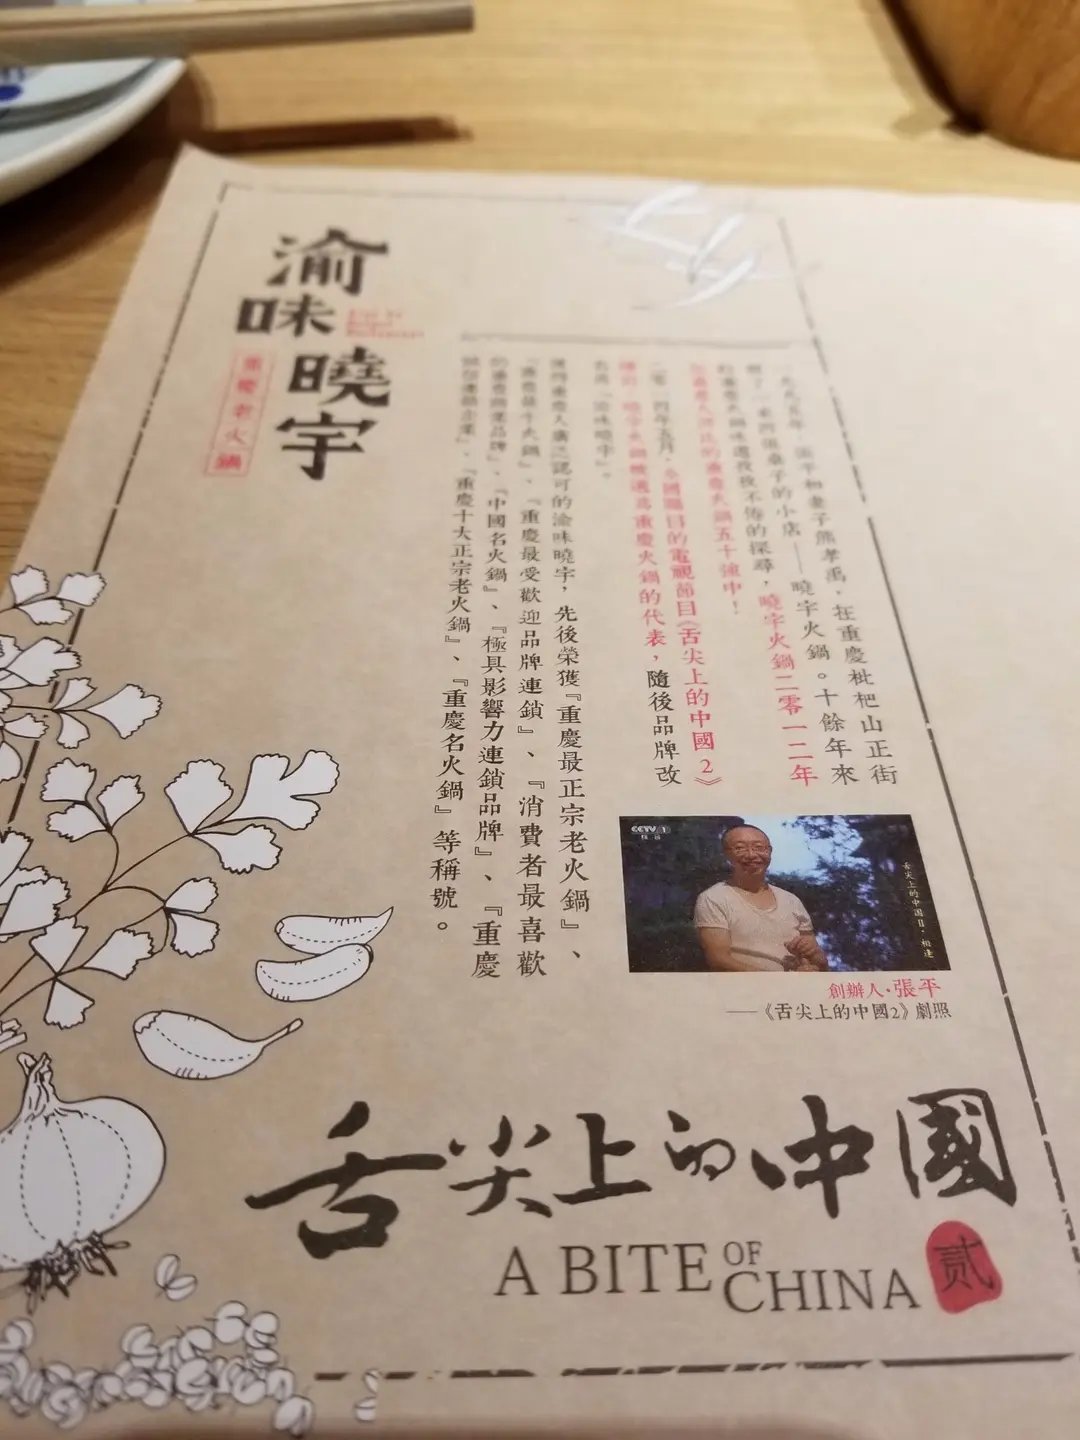 渝味曉宇
重慶老火鍋
一九九五年，張平和妻子熊孝禹，在重慶枇杷山正街
開了一家四張桌子的小店——曉宇火鍋。十餘年來
對重慶火鍋味道孜孜不倦的探尋，曉宇火鍋二零一二年
重慶火鍋五十強中！
二零一四年五月，全國矚目的電視節目《舌尖上的中國2》
曉宇火鍋被選為重慶火鍋的代表，隨後品牌改
名為『渝味曉宇』。
深得重慶人廣泛認可的渝味曉宇，先後榮獲『重慶最正宗老火鍋』、
『重慶最牛火鍋』、『重慶最受歡迎品牌連鎖』、『消費者最喜歡
的重慶商業品牌』、『中國名火鍋』、『極具影響力連鎖品牌』、『重慶
連鎖企業』、『重慶十大正宗老火鍋』、『重慶名火鍋』等稱號。
CCTV 1
綜合
舌尖上的中国Ⅱ·相逢
創辦人·張平
——《舌尖上的中國2》劇照
舌尖上的中國
A BITE OF CHINA
贰